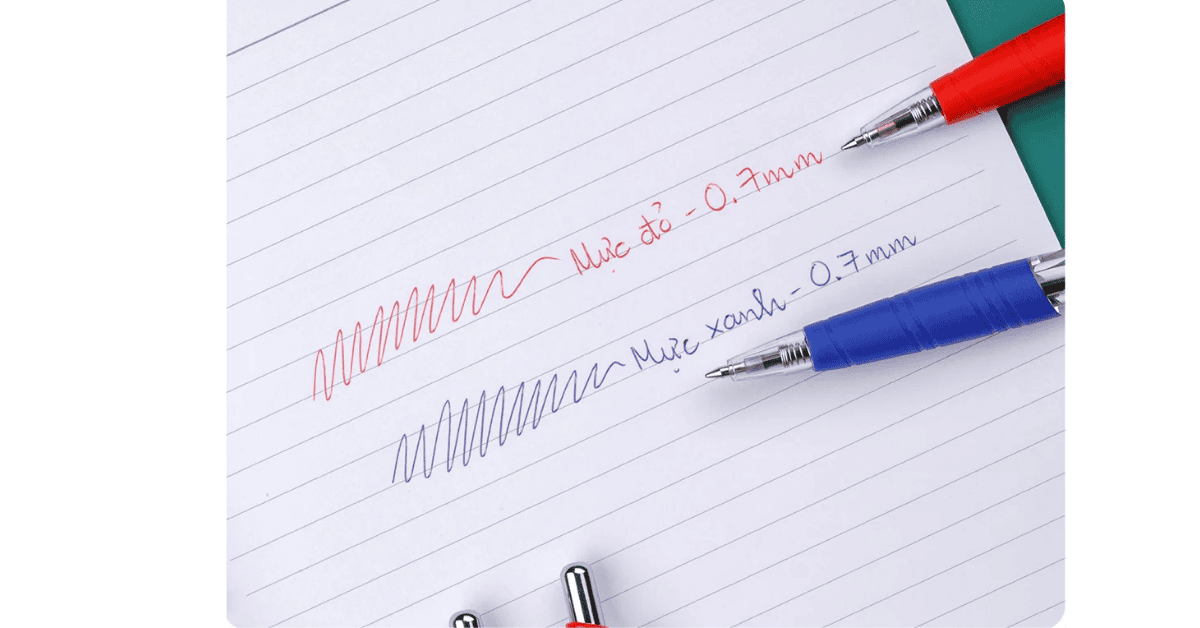 Mực đỏ - 0.7mm
Mực xanh - 0.7mm